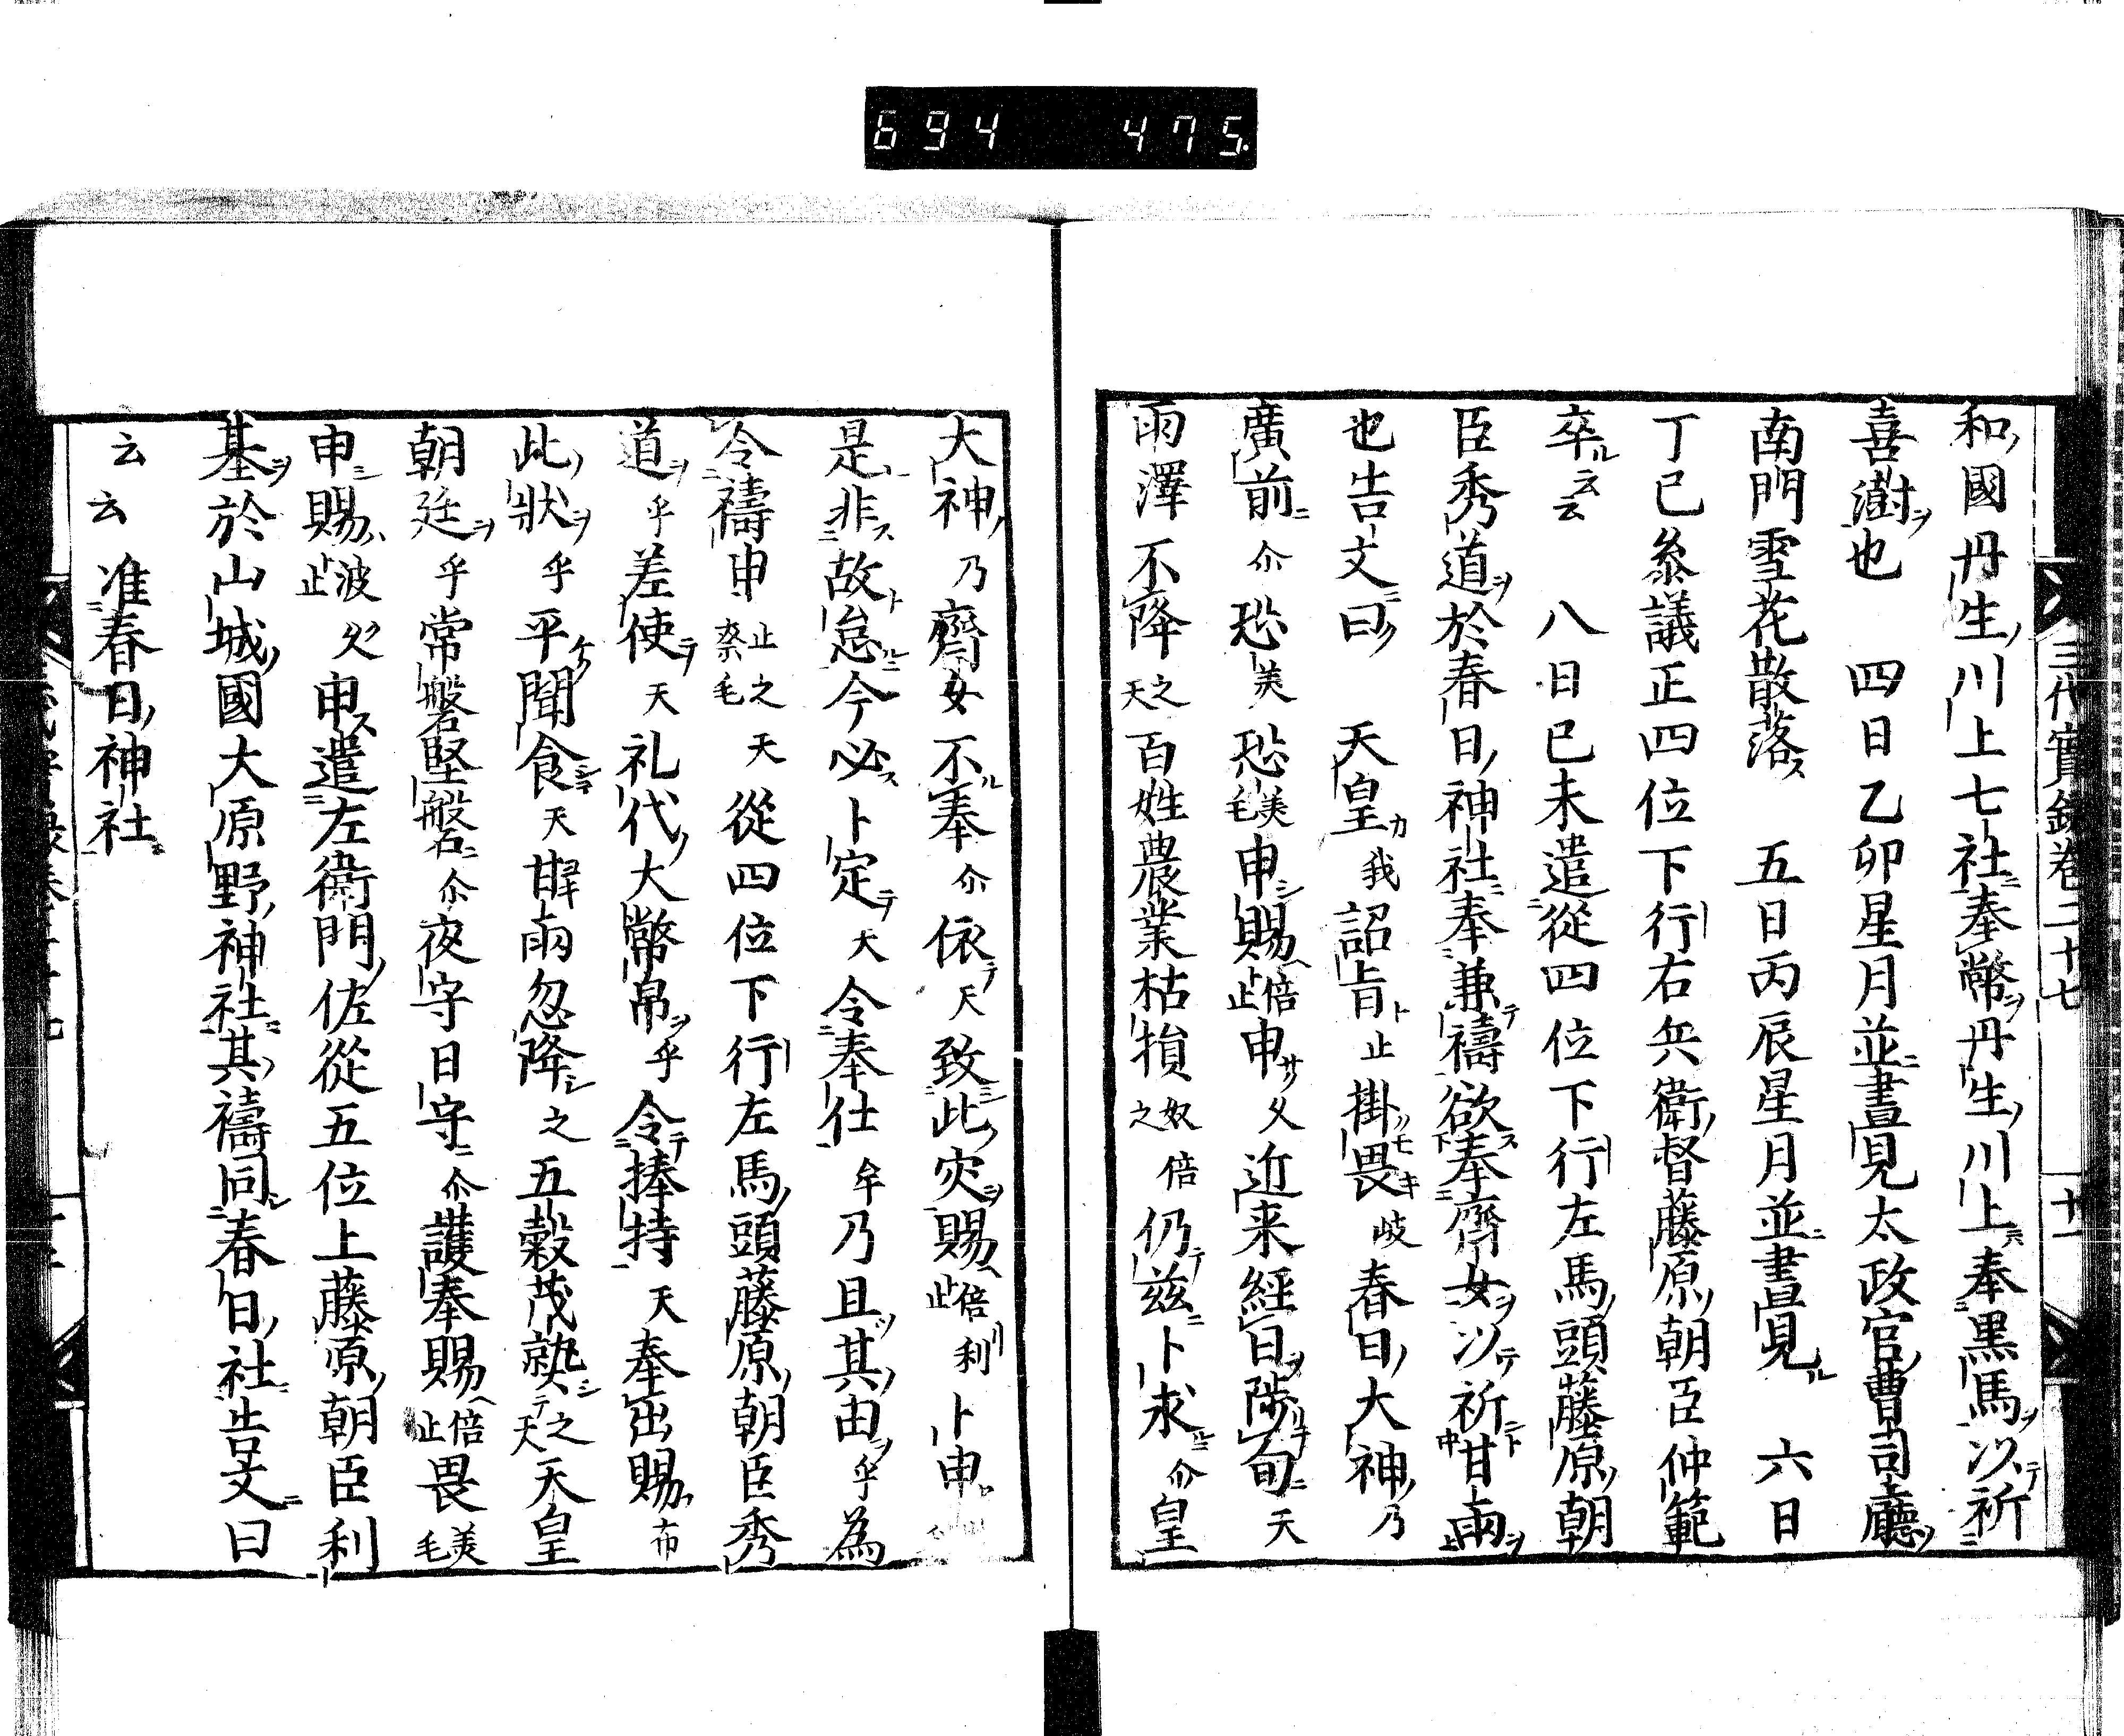 694 475.
三代實録卷二十七 十一
和國丹生川上七社奉幣丹生川上奉黒馬以祈
喜澍也 四日乙卯星月並晝見太政官曹司廳
南門雪花散落 五日丙辰星月並晝見 六日
丁巳叅議正四位下行右兵衛督藤原朝臣仲範
卒云云 八日已未遣從四位下行左馬頭藤原朝
臣秀道於春日神社奉兼禱欲奉齊女以祈甘雨
也告文曰 天皇我詔旨止掛畏岐春日大神乃
廣前尒恐美恐美毛申賜倍止申久近来經日渉旬天
雨澤不降之天百姓農業枯損奴倍之仍兹卜求尒皇
大神乃齋女不奉尒依天致此灾賜倍止利卜申
是非故怠今必卜定天令奉仕牟乃且其由乎為
令禱申止之奈毛天從四位下行左馬頭藤原朝臣秀
道乎差使天礼代大幣帛乎令捧持天奉出賜布
此狀乎平聞食天甘雨忽降之五穀茂熟之天天皇
朝廷乎常磐堅磐尒夜守日守尒護奉賜倍止畏美毛
申賜波止久申遣左衛門佐從五位上藤原朝臣利
基於山城國大原野神社其禱同春日社告文曰
云云准春日神社